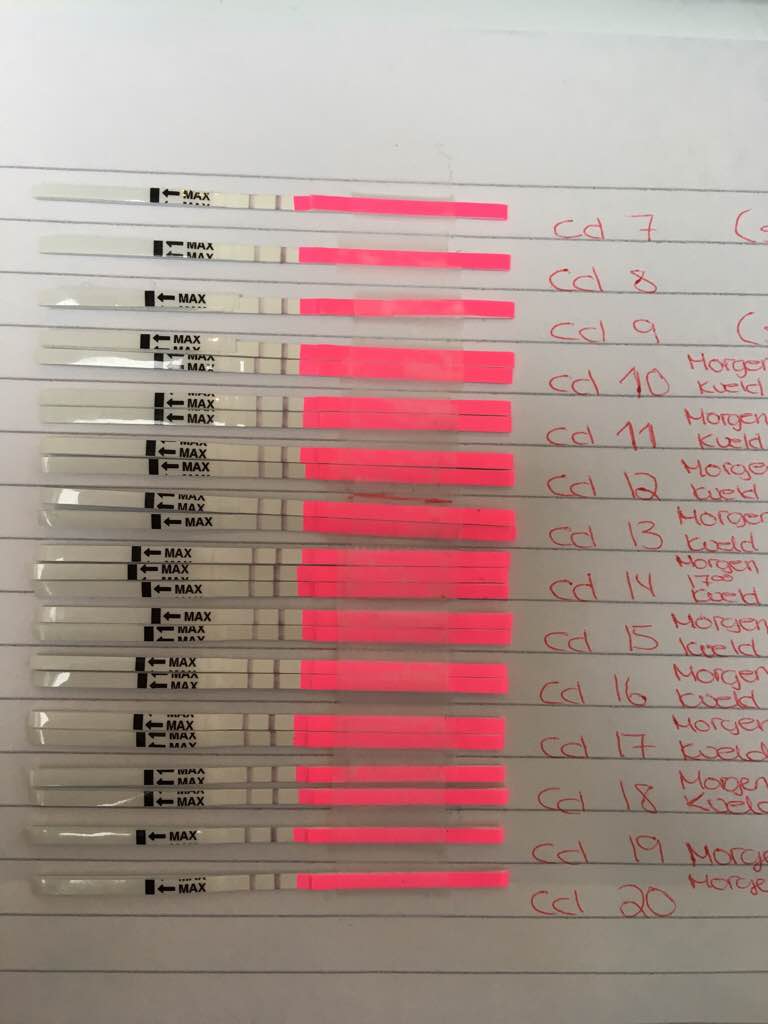 ← MAX cd 7 (
← MAX
MAX cd 8
← MAX cd 9 (
← MAX Morgen
← MAX cd 10 Kveld
← MAX Morgen
← MAX cd 11 Kveld
← MAX Morgen
← MAX cd 12 Kveld
← MAX Morgen
← MAX cd 13 Kveld
← MAX Morgen
← MAX 17⁰⁰
← MAX cd 14 Kveld
← MAX Morgen
← MAX cd 15 Kveld
← MAX Morgen
← MAX cd 16 Kveld
← MAX Morgen
← MAX cd 17 Kveld
← MAX Morgen
← MAX cd 18 Kveld
← MAX cd 19 Morge
← MAX Morge
cd 20